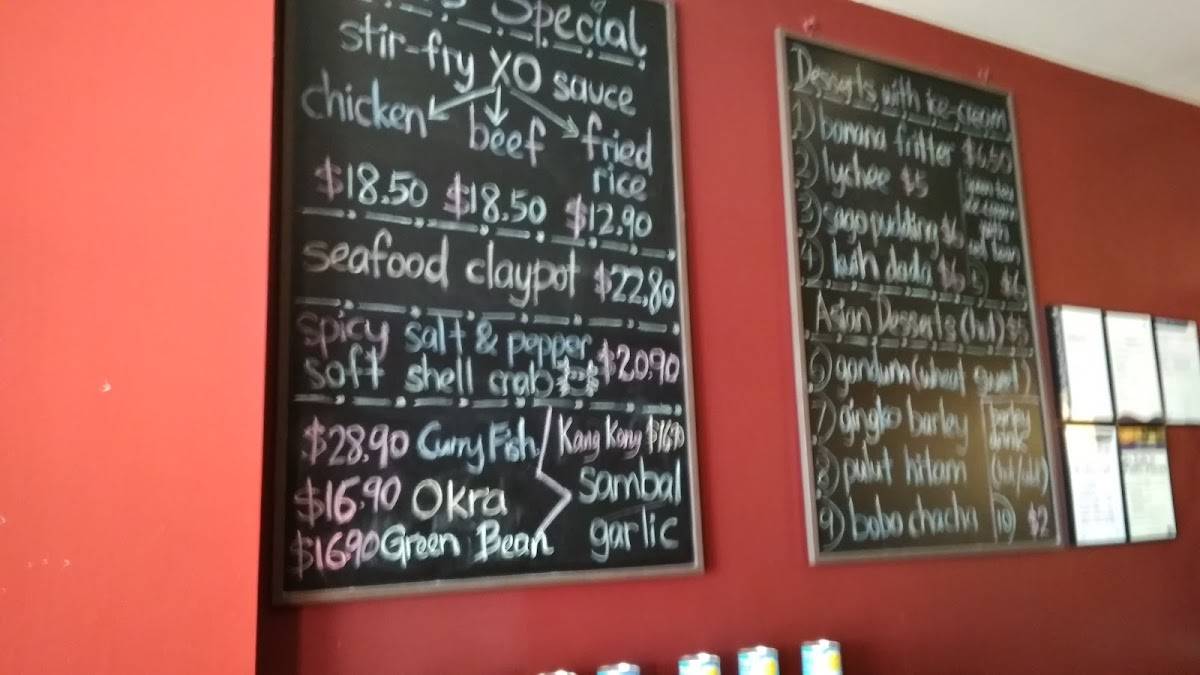 Special
stir-fry XO sauce
chicken beef fried
rice
$18.50 $18.50 $12.90
seafood claypot $22,80
spicy salt & pepper
soft shell crab $20,90
$28,90 Curry Fish Kang Kong $16.90
$16.90 Okra Sambal
$16.90 Green Bean garlic
Desserts with ice-cream
1) banana fritter $6.50
2) lychee $5
3) sago pudding $6
4) kuih dada $6 5) $6
Asian Desserts (hot) $5
6) gandum (wheat
7) gingko barley barley
drink
8) pulut hitam
9) bobo chacha 10) $2